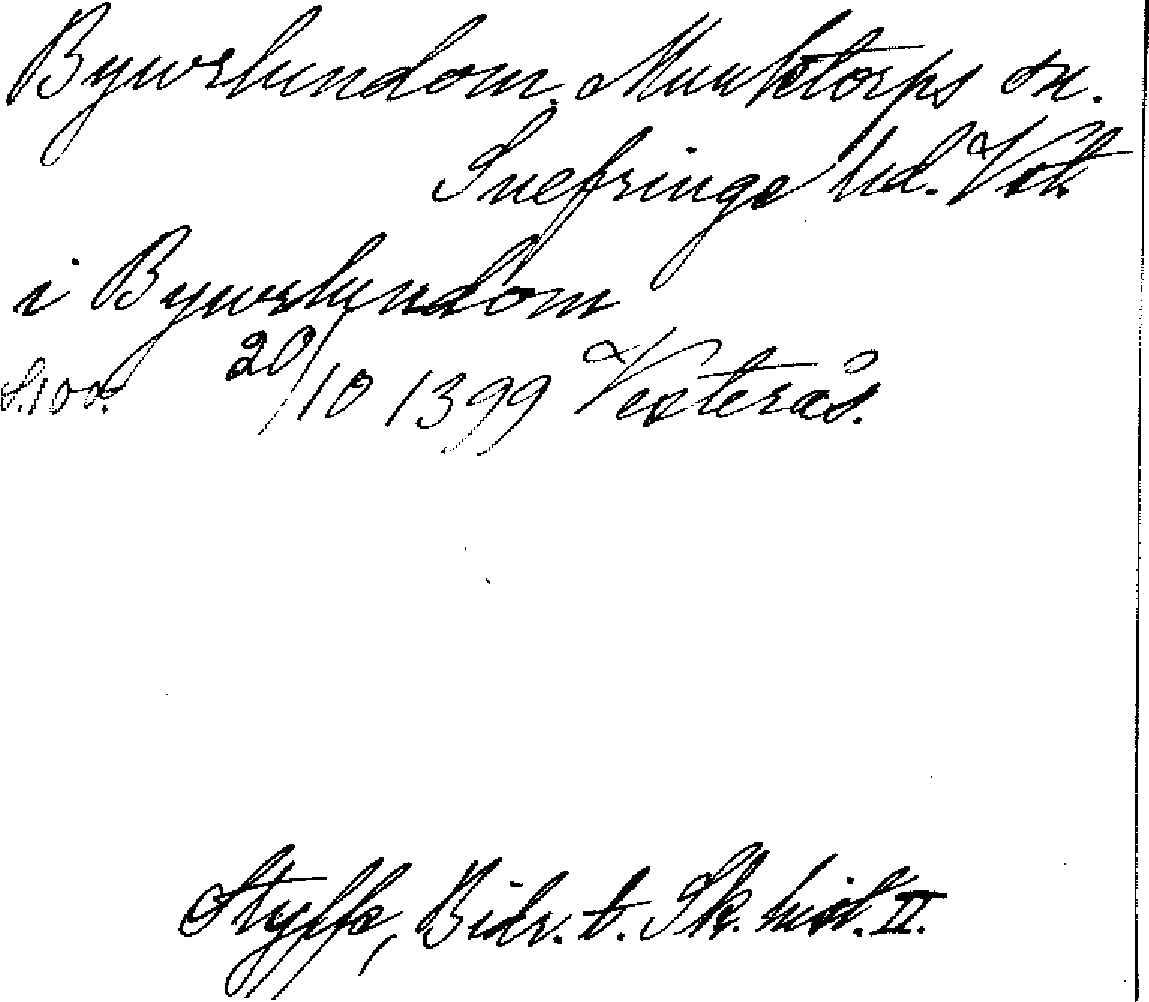 Bywrlundom. Munktorps sn.
Snefringe hd. Vstm
i Bywrlundom
S. 100. 20/10 1399 Vesterås.
Styffe, Bidr. t. Sk. hist. II.